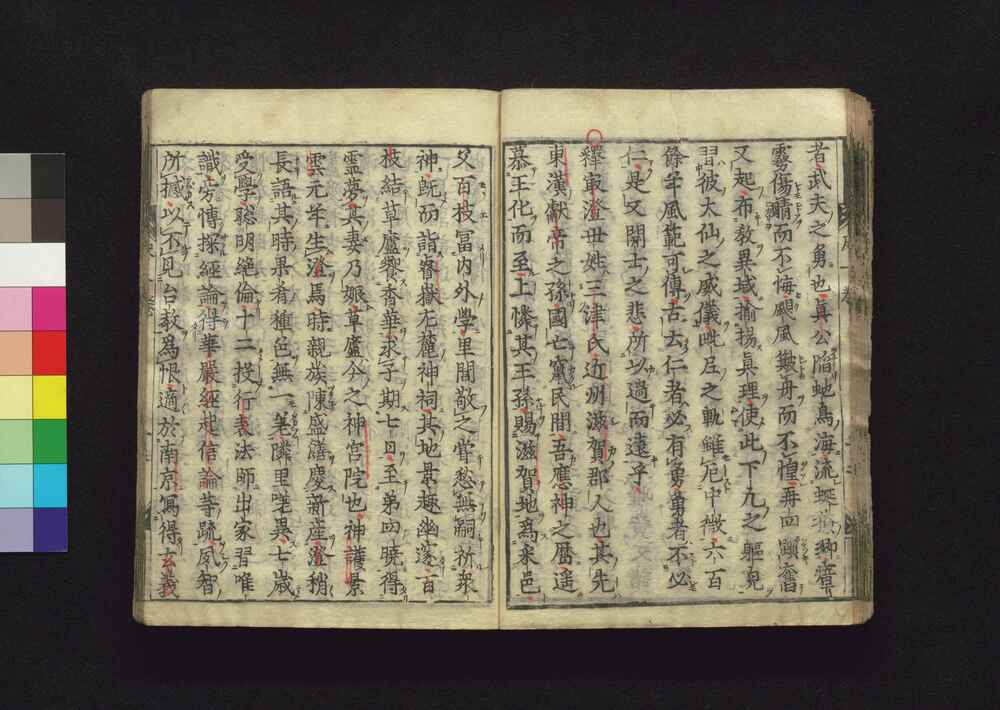 者武夫之勇也眞公陷虵鳥海流蝦
霧傷睛而不悔颶風艱舟而不惶再四顚奮
又起布敎異域揄揚眞理使此下凡之軀克
習彼大仙之威儀嗟庄之軌雖厄中微六百
餘年風範可傳古去仁者必有勇勇者不必
仁是又開士之悲所以過而遠乎
釋最澄世姓三津氏近州滋賀郡人也其先
東漢獻帝之孫國亡竄民間吾應神之曆遥
慕王化而至上憐其王孫賜滋賀地爲來邑
父百枝冨内外學里閭敬之嘗愁無嗣祈衆
神既而詣睿嶽左麓神祠其地景趣幽邃百
枝結草廬饗香華求子期七日至第四曉得
靈夢其妻乃娠草廬今之神宮院也神護景
雲元年生澄焉時親族陳盛膳慶新産澄稍
長語其時果肴種色無一差隣里嗟異七歳
受學聡明絶倫十二投行表法師出家習唯
識旁傳探經論得華嚴經起信論等疏夙智
所攄以不見台敎爲恨適於南京寫得玄義